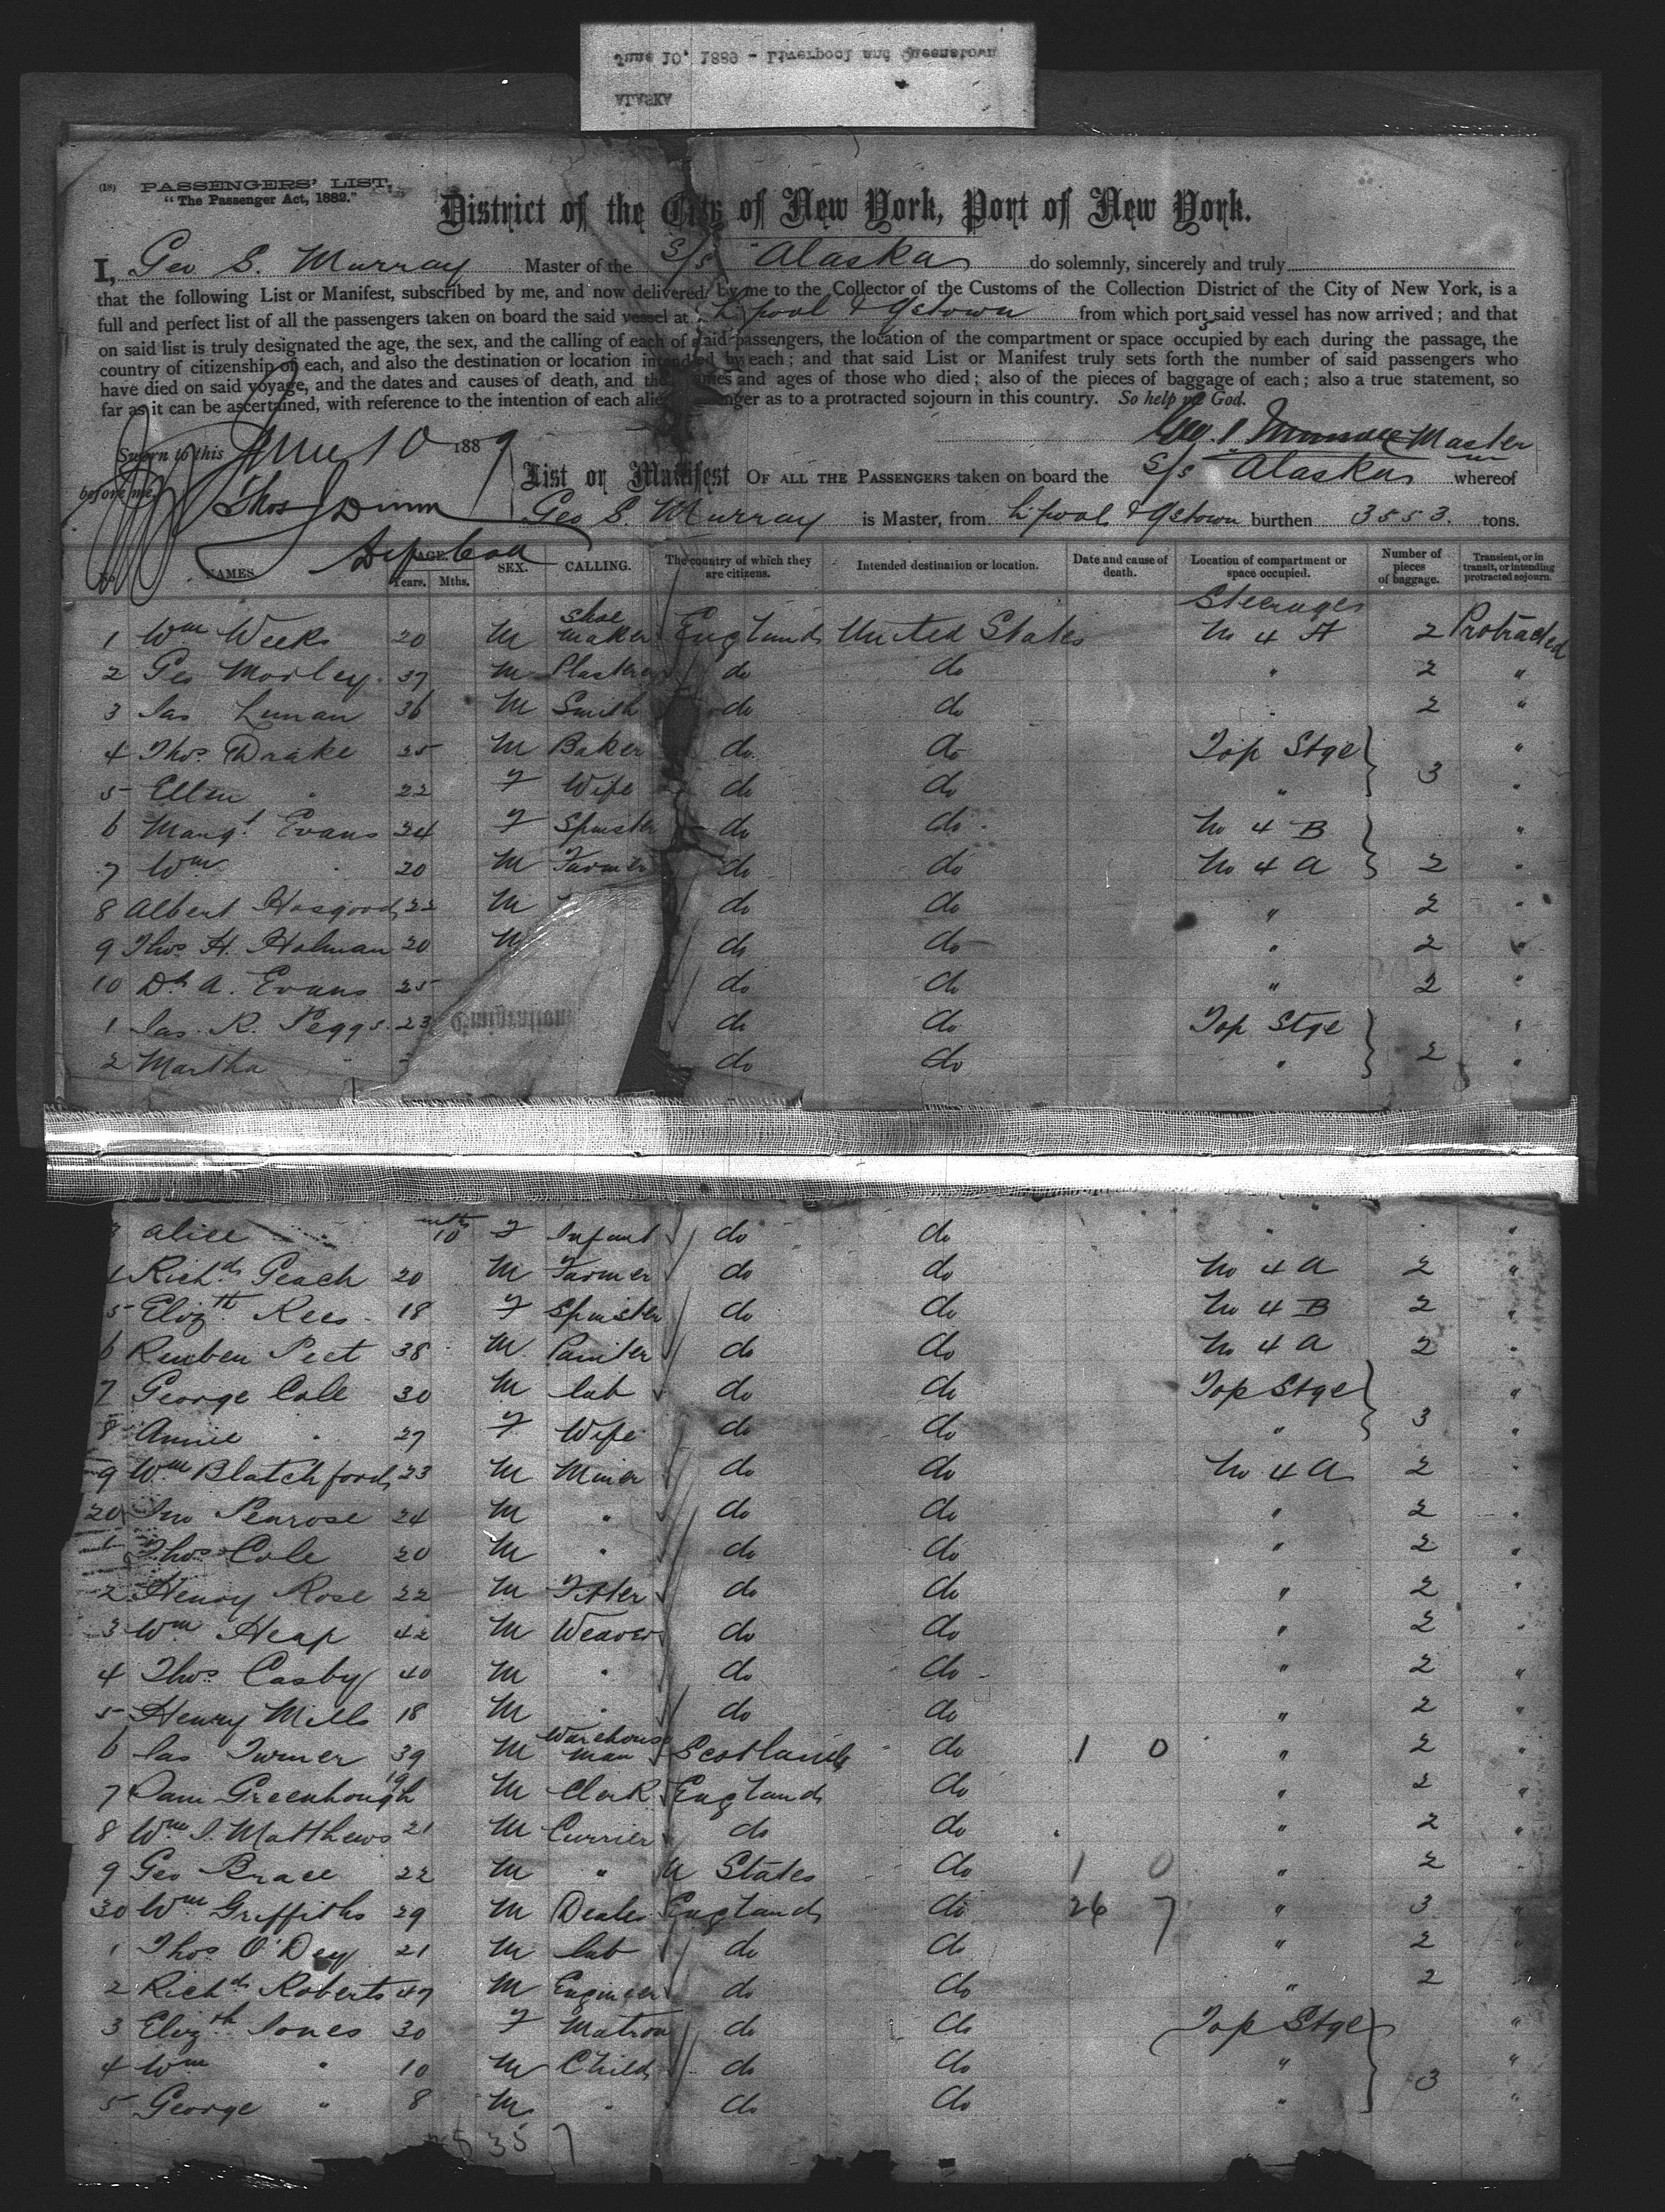 June 10, 1889 - Liverpool and Queenstown
ALASKA
(18) PASSENGERS' LIST.
"The Passenger Act, 1882."
District of the City of New York, Port of New York.
I, Geo S. Murray Master of the S/S Alaska do solemnly, sincerely and truly
that the following List or Manifest, subscribed by me, and now delivered by me to the Collector of the Customs of the Collection District of the City of New York, is a
full and perfect list of all the passengers taken on board the said vessel at L'pool & Qstown from which port said vessel has now arrived; and that
on said list is truly designated the age, the sex, and the calling of each of said passengers, the location of the compartment or space occupied by each during the passage, the
country of citizenship of each, and also the destination or location intended by each; and that said List or Manifest truly sets forth the number of said passengers who
have died on said voyage, and the dates and causes of death, and the names and ages of those who died; also of the pieces of baggage of each; also a true statement, so
far as it can be ascertained, with reference to the intention of each alien passenger as to a protracted sojourn in this country. So help me God.
Sworn to this June 10 1889 Geo. S. Murray Master
before me List or Manifest OF ALL THE PASSENGERS taken on board the S/S Alaska whereof
Thos J Dunn Geo S. Murray is Master, from L'pool & Qstown burthen 3553. tons.
Dep. Coll
No. NAMES AGE. Years. Mths. SEX. CALLING. The country of which they are citizens. Intended destination or location. Date and cause of death. Location of compartment or space occupied. Number of pieces of baggage. Transient, or in transit, or intending protracted sojourn.
Steerage
1 Wm Weeks 20 M Shoe maker England United States No 4 A 2 Protracted
2 Geo Morley 37 M Plasterer do do " 2 "
3 Jas Lunan 36 M Smith do do " 2 "
4 Thos Drake 25 M Baker do do Top Stge "
5 Ellen " 22 F Wife do do " 3 "
6 Margt Evans 24 F Spinster do do No 4 B "
7 Wm " 20 M Farmer do do No 4 A 2 "
8 Albert Hosgood 22 M do do " 2 "
9 Thos H. Holman 20 M do do " 2 "
10 Dd A. Evans 25 do do " 2 "
1 Jas. R. Peggs 23 do do Top Stge "
2 Martha " do do " 2 "
3 Alice mths 10 F Infant do do " "
4 Richd Geach 20 M Farmer do do No 4 A 2 "
5 Elizth Rees 18 F Spinster do do No 4 B 2 "
6 Reuben Peet 38 M Painter do do No 4 A 2 "
7 George Cole 30 M Lab do do Top Stge "
8 Annie " 27 F Wife do do " 3 "
9 Wm Blatchford 23 M Miner do do No 4 A 2 "
20 Jno Penrose 24 M " do do " 2 "
1 Thos Cole 20 M " do do " 2 "
2 Henry Rose 22 M Fitter do do " 2 "
3 Wm Heap 42 M Weaver do do " 2 "
4 Thos Casby 40 M " do do " 2 "
5 Henry Mills 18 M " do do " 2 "
6 Jas Turner 39 M Warehouse man Scotland do 1 0 " 2 "
7 Sam Greenhough 19 M Clerk England do " 2 "
8 Wm J. Matthews 21 M Currier do do " 2 "
9 Geo Brace 22 M " U States do 1 0 " 2 "
30 Wm Griffiths 29 M Dealer England do 26 7 " 3 "
1 Thos O'Dey 21 M Lab do do " 2 "
2 Richd Roberts 47 M Engineer do do " 2
3 Elizth Jones 30 F Matron do do Top Stge "
4 Wm " 10 M Child do do " "
5 George " 8 M " do do " 3 "
35 7